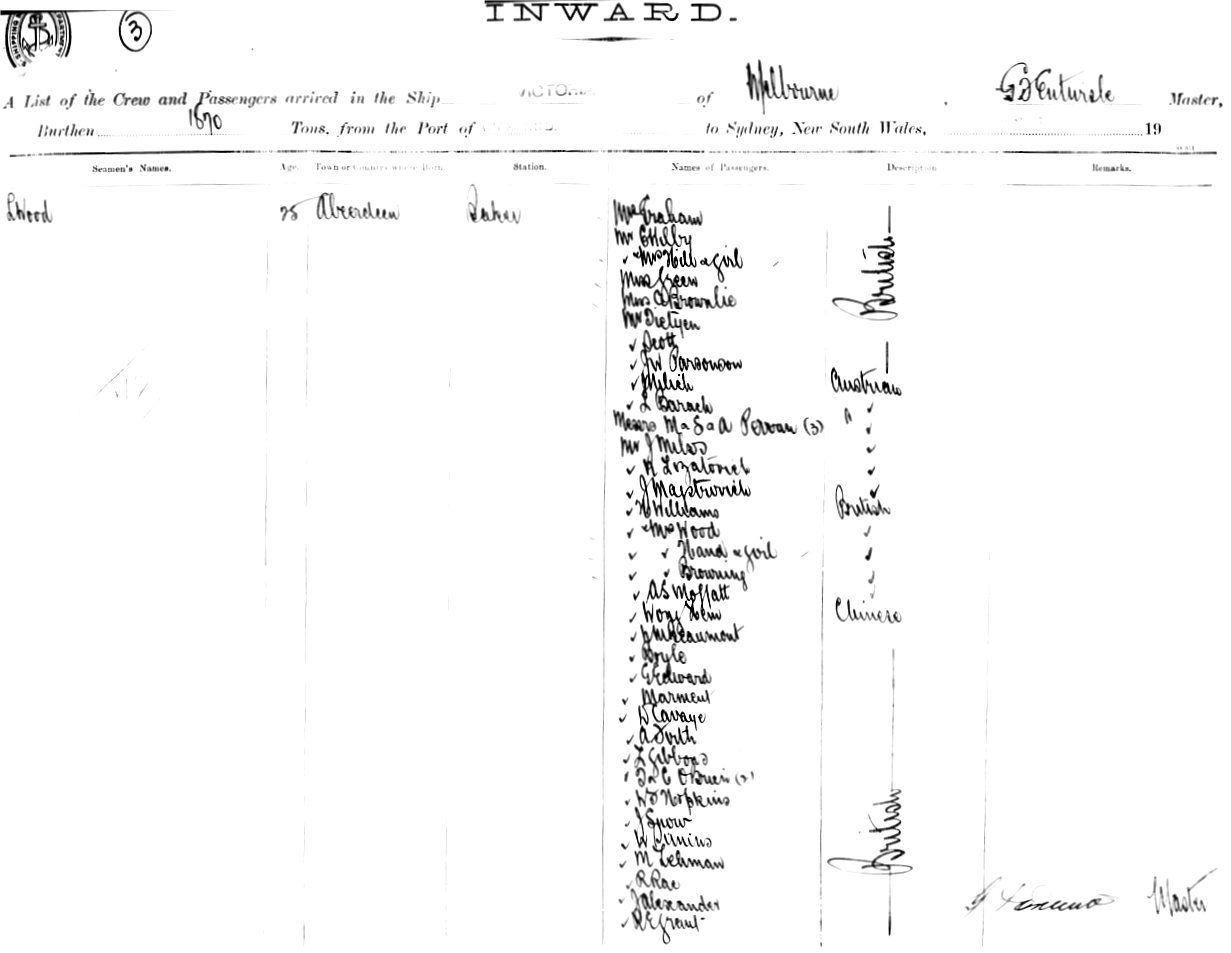 INWARD.
SHIPPING DEPARTMENT
3
A List of the Crew and Passengers arrived in the Ship VICTORIA of Melbourne, Master,
Burthen 1870 Tons, from the Port of to Sydney, New South Wales, 19
Seamen's Names. Age. Town or Country where Born. Station. Names of Passengers. Description Remarks.
L Wood 25 Aberdeen Baker Mrs Graham
Mr
✓ & Mrs Hill & girl British
Miss Green
Miss A Brownlie
Mr Dietyen
✓ Scott
✓ JW Parsonson
✓ Milich Austrian
✓ L Barach ✓
Messrs M & S & A Pervan (3) ✓
Mr J Milas ✓
✓ ✓
✓ J Mastrovich ✓
✓ Williams British
✓ & Mrs Wood ✓
✓ ✓ Hand & girl ✓
✓ ✓ Browning ✓
✓ AS Moffatt ✓
✓ Wong Hem Chinese
✓ Beaumont
✓ Boyle
✓ G Edward
✓ Marment
✓ D Cavaye
✓ A Firth
✓ L Gibbons
✓ & C O'Brien (2)
✓ WD Hopkins
✓ J Snow
✓ W
✓ M Lehman British
✓ R Rae
✓ J Alexander Master
✓ RE Grant